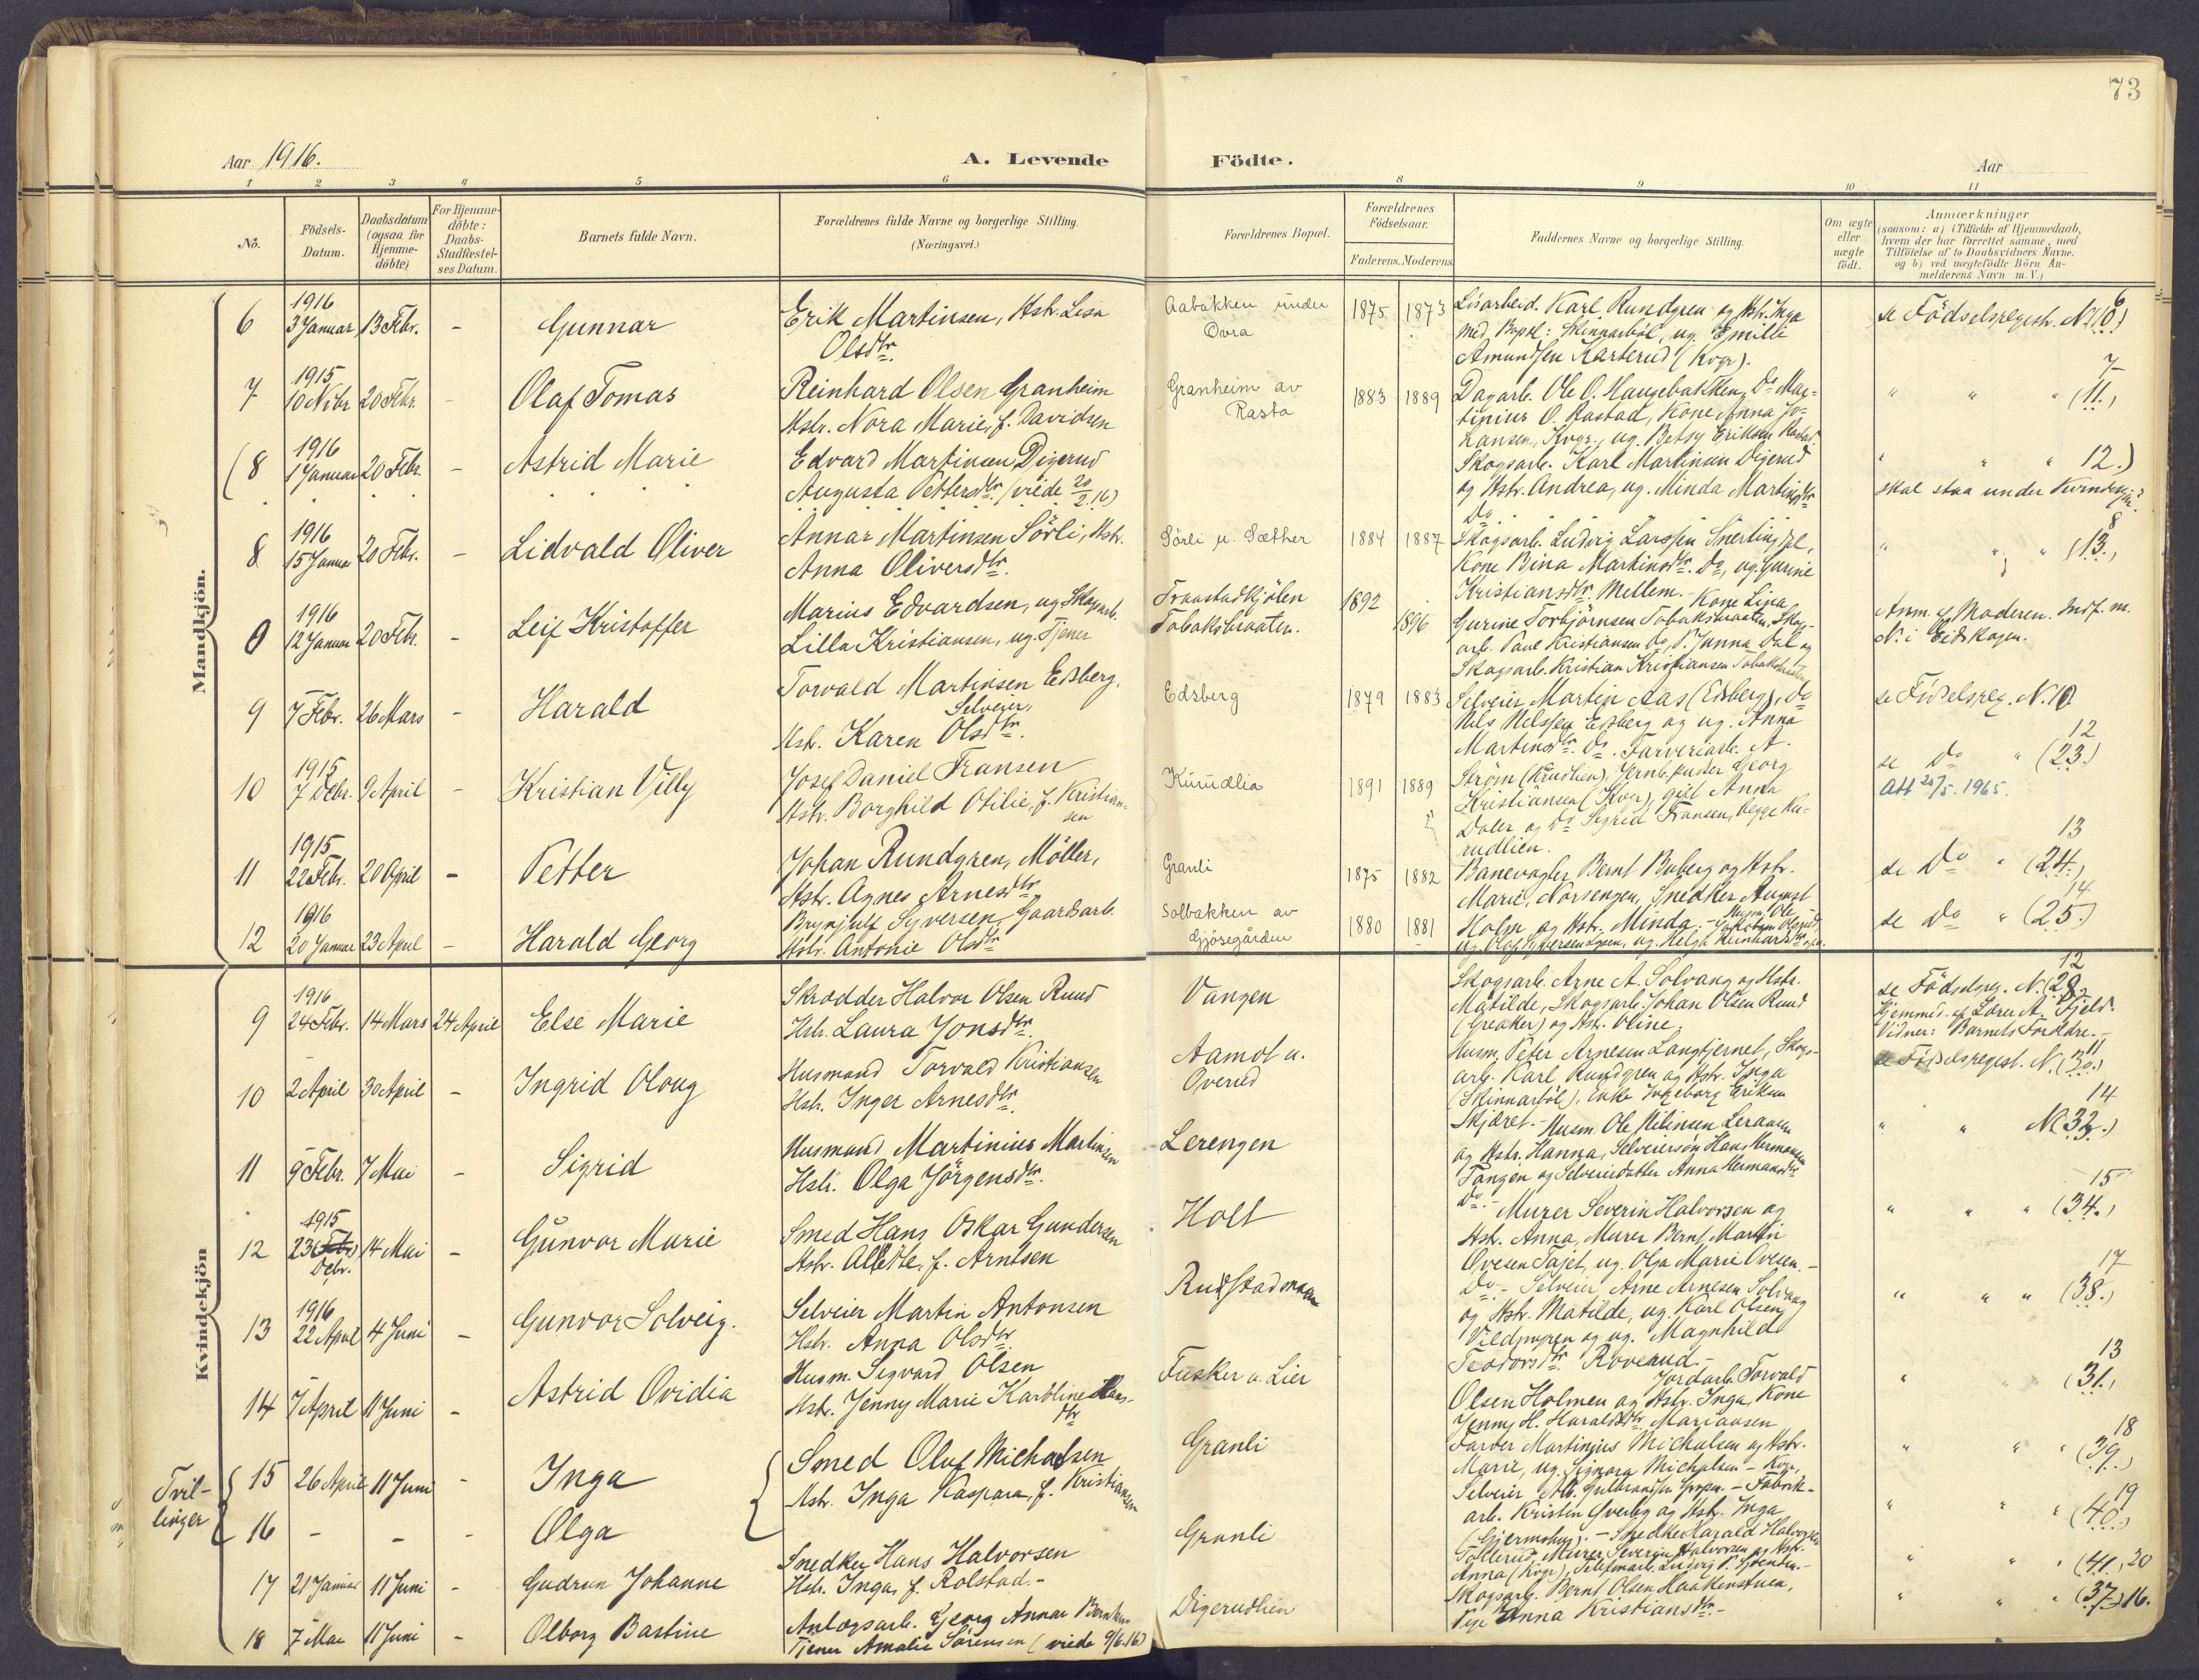 73
Aar 1916.
A. Levende
Födte.
Aar
1 2 3 4 5 6 8 9 10 11
Nö.
Födsels-
Datum.
Daabsdatum
(ogsaa for
Hjemme-
döbte)
For Hjemme-
döbte:
Daabs-
Stadfæstel-
ses Datum.
Barnets fulde Navn.
Forældrenes fulde Navne og borgerlige Stilling.
(Næringsvei.)
Forældrenes Bopæl.
Forældrenes
Födselsaar.
Faderens. Moderens
Faddernes Navne og borgerlige Stilling.
Om ægte
eller
uægte
födt.
Anmærkninger
(saasom: a) i Tilfælde af Hjemmedaab,
hvem der har forrettet samme, med
Tilföielse af to Daabsvidners Navne.
og b) ved uægtefödte Börn An-
melderens Navn m. V.)
Mandkjön.
6 1916
3 Januar 13 Febr. - Gunnar
Erik Martinsen, Hstr. Lisa
Olsdtr.
Aabakken under
Ovra
1875 1873
Karl Rundgren og Hstr. Inga
Skinnarböl, ug. Emilie
Amundsen Karterud (Kvgr).
se Födselsregistr. No
7 1915
10 Nvbr 20 Febr. - Olaf Tomas
Reinhard Olsen Granheim
Hstr. Nora Marie, f. Davidsen
Granheim av
Rasta
1883 1889
Dagarb. Ole O. Haugebakken, Do Mar-
tinius O. Rastad, Kone Anna Jo-
hansen, Kvgr., ug. Betsy Eriksen
7
" " " (11.)
(8 1916
1 Januar 20 Febr. - Astrid Marie
Edvard Martinsen Digerud
Augusta Pettersdtr. (viede 20/2.16)
Skogsarb. Karl Martinsen Digerud
og Hstr. Andrea, ug. Minda Martinsdtr
Do.
" " " 12.)
skal staa under Kvindekjön.
8 1916
15 Januar 20 Febr. - Lidvald Oliver
Annar Martinsen Sörli, Hstr.
Anna Oliversdtr.
Sörli u. Sæther
1884 1887
Skogsarb. Ludvig Larssen
Kone Bina Martinsdtr. Do, ug. Gurine
Kristiansdtr. Mellem.
8
" " " (13.)
0 1916
12 Januar 20 Febr. - Leif Kristoffer
Marius Edvardsen, ug. Skogsarb.
Lilla Kristiansen, ug. Tjener
Fraastadkjölen
Tobaksbraaten.
1892 1896
Kone Lina
Gurine Torbjörnsen Tobaksbraaten, Skog-
arb. Paul Kristiansen Do, P. Janna Dal og
Skogsarb. Kristian Kristiansen Tobaksbraaten
Anm. af Moderen. Indf. m.
N. i Eidskogen.
9 7 Febr. 26 Mars - Harald
Torvald Martinsen Edsberg,
Selveier,
Hstr. Karen Olsdtr.
Edsberg
1879 1883
Selveier Martin Aas (Edsberg), Do
Nils Nilssen Edsberg og ug. Anna
Martinsdtr. Do. Farveriarb. A.
se Födselsreg. N. 10
10 1915
7 Debr. 9 April - Kristian Villy
Josef Daniel Fransen
Hstr. Borghild Otilie, f. Kristian-
sen
Kurudlia
1891 1889
Ström (Krudlien), Jernb.puder Georg
Kristiansen (Kvgr), gift Anna
Daler og Do Sigrid Fransen, begge Ku-
rudlien.
12
se Do " (23.)
Att 20/5. 1965.
11 1915
22 Febr. 20 April - Petter
Johan Rundgren, Möller,
Hstr. Agnes Arnesdtr.
Granli
1875 1882
Banevogter Bernt Buberg og Hstr.
Marie, Norsengen, Snedker August
13
se Do " (24.)
12 1916
20 Januar 23 April - Harald Georg
Brynjulf Syversen, Gaardsarb.
Hstr. Antonie Olsdtr
Solbakken av
Gjösegården
1880 1881
Holm og Hstr. Minda. -
14
se Do " (25.)
Kvindekjön
9 1916
24 Febr. 14 Mars 24 April Else Marie
Skrædder Halvor Olsen Ruud
Hstr. Laura Jonsdtr.
Vangen
Skogsarb. Arne A. Solvang og Hstr.
Matilde, Skogsarb. Johan Olsen Ruud
(Greaker) og Hstr. Oline.
12
se Födselsreg. N.
Hjemmed. af Lærer A. Fjeld.
Vidner: Barnets Forældre.
10 2 April 30 April - Ingrid Oloug
Husmand Torvald Kristiansen
Hstr. Inger Arnesdtr.
Aamot u.
Overud
Husm. Peter Arnesen Langtjernet, Skogs-
arb. Karl Rundgren og Hstr. Inga
(Skinnarböl), Enke Ingeborg Eriksen
Skjæret.
11
se Födselsregist. N. (30.)
11 9 Febr. 7 Mai - Sigrid
Husmand Martinius Martinsen
Hstr. Olga Jörgensdtr.
Lerengen
Husm. Ole Nilinsen Leraasen
og Hstr. Hanna, Selveiersön Hans Hermansen
Tangen og Selveierdatter Anna Hermansdtr
Do.
14
" " N(32.)
12 1915
23 (Febr) 14 Mai - Gunvor Marie
Debr.
Smed Hans Oskar Gundersen
Hstr. Allette, f. Arntsen
Holt
Murer Severin Halvorsen og
Hstr. Anna, Murer Bernt Martin
Ovesen Tajet, ug. Olga Marie Ovesen. -
Do. -
15
" " " (34.)
13 1916
22 April 4 Juni - Gunvor Solveig.
Selveier Martin Antonsen
Hstr. Anna Olsdtr.
Rustadmoen
Selveier Arne Arnesen Solvang
og Hstr. Matilde, ug. Karl Olsen
og ug. Magnhild
Teodorsdtr Roverud. -
17
" " " (38.)
14 7 April 11 Juni - Astrid Ovidia
Husm. Sigvard Olsen
Hstr. Jenny Marie Karoline Hans-
dtr
Fusker u. Lier
Jordarb. Torvald
Olsen Holmen og Hstr. Inga, Kone
Jenny H. Haraldsdtr Mariansen
13
" " " (31.)
Tvil-
linger
15 26 April 11 Juni - Inga
Smed Oluf Michalsen
Hstr. Inga Kaspara, f. Kristiansen
Granli
Farver Martinius Michalsen og Hstr.
Marie, ug. Signora Michalsen - Kvgr,
18
" " " (39.)
16 - - - Olga
Selveier Alb. - Fabrik-
arb. Kristen Overby og Hstr. Inga
19
" " " (40.)
17 21 Januar 11 Juni - Gudrun Johanne
Snedker Hans Halvorsen
Hstr. Inga, f. Rolstad. -
Granli
- Snedker Harald Halvorsen
Tollerud, Murer Severin Halvorsen og Hstr.
Anna (Kvgr),
" " " (41.) 20
18 7 Mai 11 Juni - Olborg Bastine
Anlægsarb. Georg Annar Berntsen
Tjener Amalie Sörensen (viede 9/6.16)
Digerudlien
Skogsarb. Bernt Olsen Haakenstuen,
Pige Anna Kristiansdtr. -
" " " (37) 16.